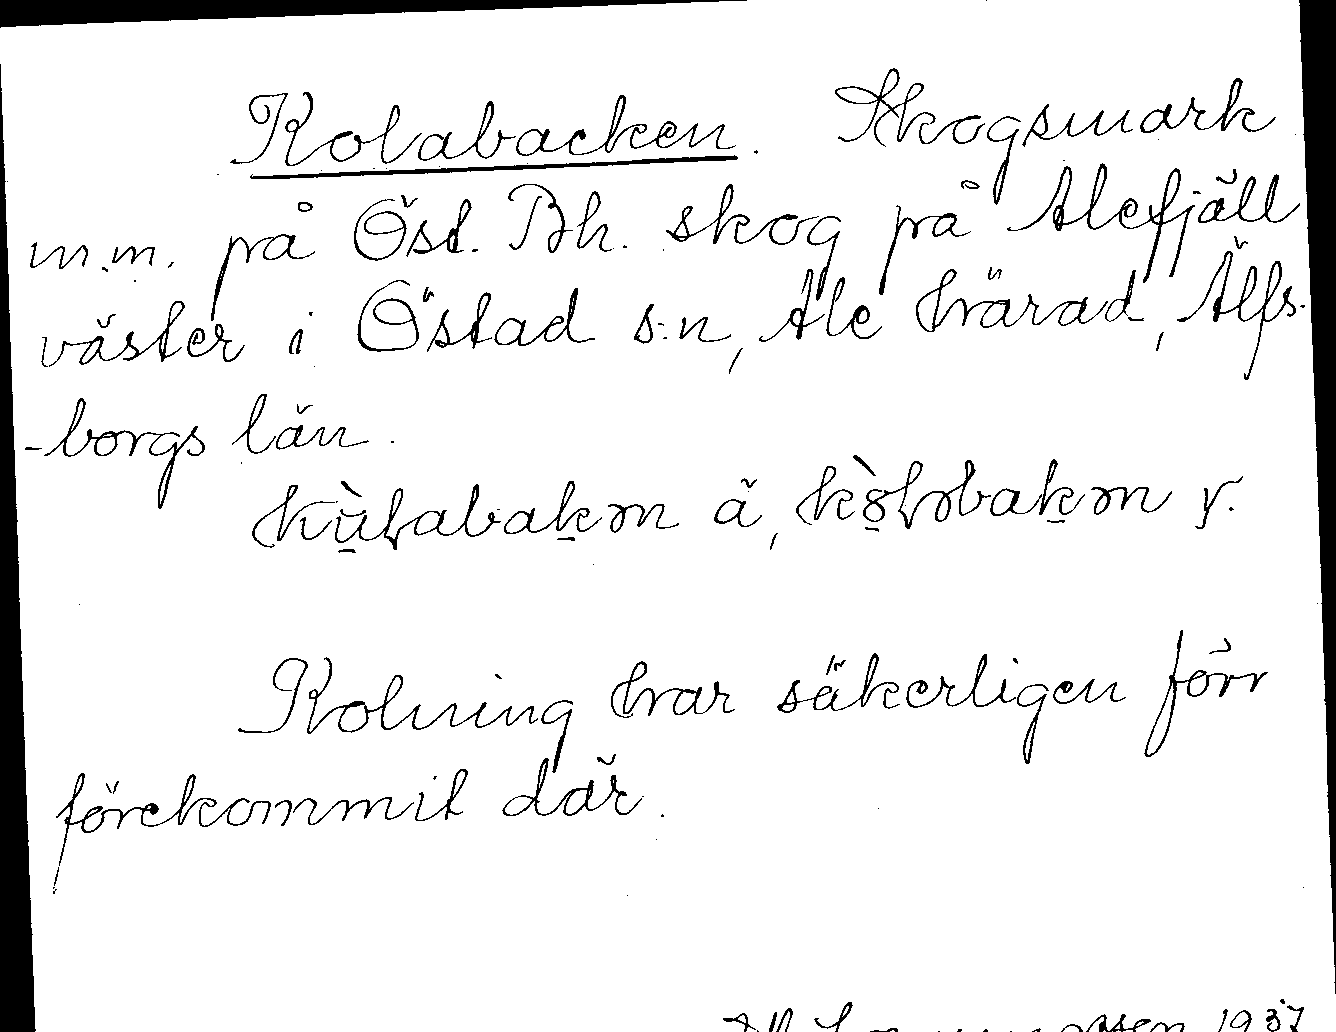 Kolabacken. Skogsmark
m.m. på Öst. Bh. skog på Alefjäll
väster i Östad s:n, Ale härad, Älfs-
-borgs län.
kùlabakən ä, kòləbakən y.
Kolning har säkerligen förr
förekommit där.
1937